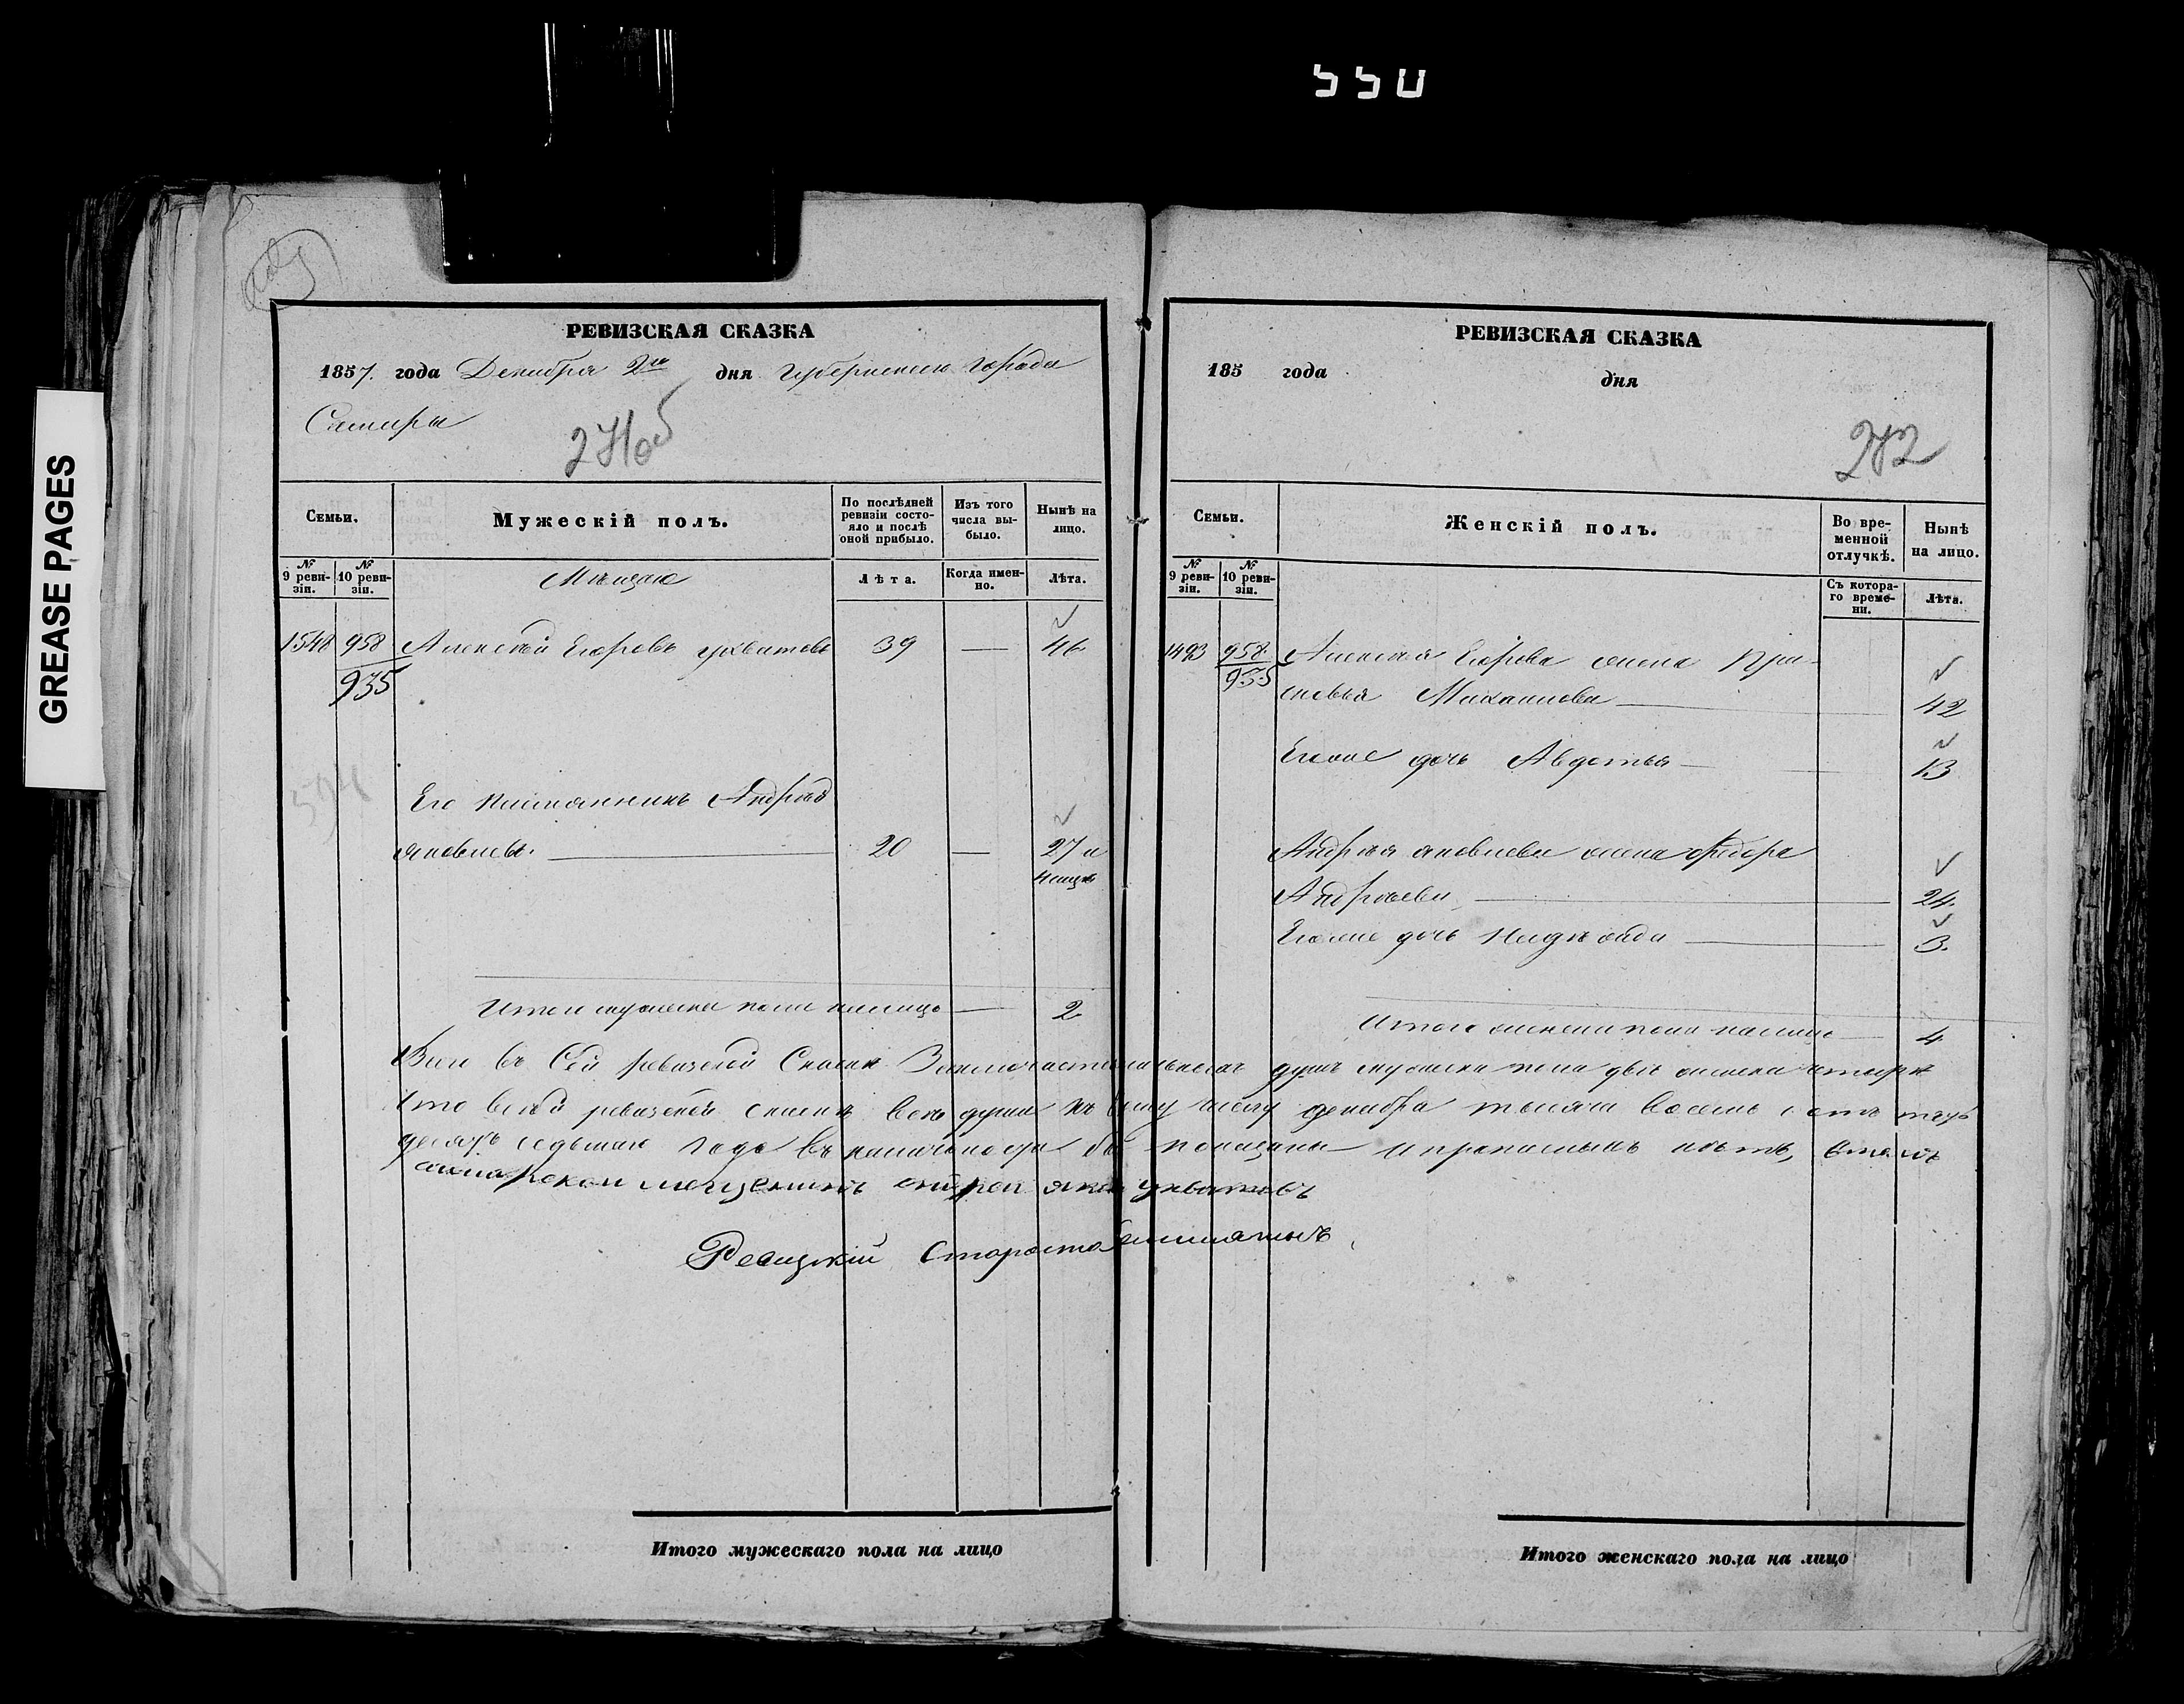 GREASE PAGES
РЕВИЗСКАЯ СКАЗКА
1857. года Декабря 2го дня Губернскаго города
Самары
271об
Семьи.
Мужескій полъ.
По послѣдней ревизіи состояло и послѣ оной прибыло.
Изъ того числа выбыло.
Нынѣ на лицо.
№ 9 ревизіи.
№ 10 ревизіи.
Мѣщане
Лѣта.
Когда именно.
Лѣта.
1548 958 Алексѣй Егоровъ Ухватовъ 39 — 46
935
Его племянникъ Андрей
Яковлевъ. 20 — 27 и
Итого мужска пола налицо — 2
РЕВИЗСКАЯ СКАЗКА
185 года дня
272
Семьи.
Женскій полъ.
Во временной отлучкѣ.
Нынѣ на лицо.
№ 9 ревизіи.
№ 10 ревизіи.
Съ котораго времени.
Лѣта.
1493 958 Алексѣя Егорова жена Пра-
935 сковья Михайлова — 42
Егоже дочь Авдотья — 13
Андрея Яковлева жена Федора
Андреева — 24.
Егоже дочь Надѣжда — 3.
Итого женска пола налицо — 4
Всего въ Сей ревизской Сказкѣ Заключается душъ мужска пола двѣ женска четыре
Что в сей ревизской сказкѣ всѣ души къ числу декабря тысяча восемь сотъ пять
десятъ седьмаго года въ наличности показаны и прописныхъ нѣтъ, въ томъ
самарской мещенинъ Ухватовъ
Ревизкій Староста
Итого мужескаго пола на лицо
Итого женскаго пола на лицо